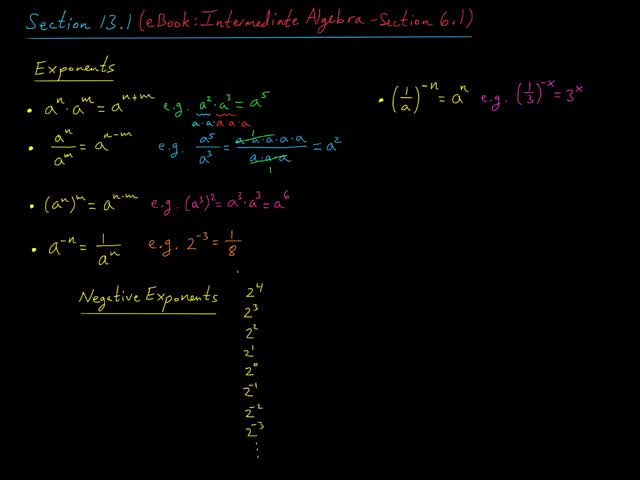 Section 13.1 (eBook: Intermediate Algebra - Section 6.1)
Exponents
• aⁿ·aᵐ = aⁿ⁺ᵐ e.g. a²·a³ = a⁵
a·a·a·a·a
• aⁿ/aᵐ = aⁿ⁻ᵐ e.g. a⁵/a³ = a·a·a·a·a/a·a·a = a²
1
1
• (aⁿ)ᵐ = aⁿ·ᵐ e.g. (a³)² = a³·a³ = a⁶
• a⁻ⁿ = 1/aⁿ e.g. 2⁻³ = 1/8
Negative Exponents
2⁴
2³
2²
2¹
2⁰
2⁻¹
2⁻²
2⁻³
⋮
• (1/a)⁻ⁿ = aⁿ e.g. (1/3)⁻ˣ = 3ˣ